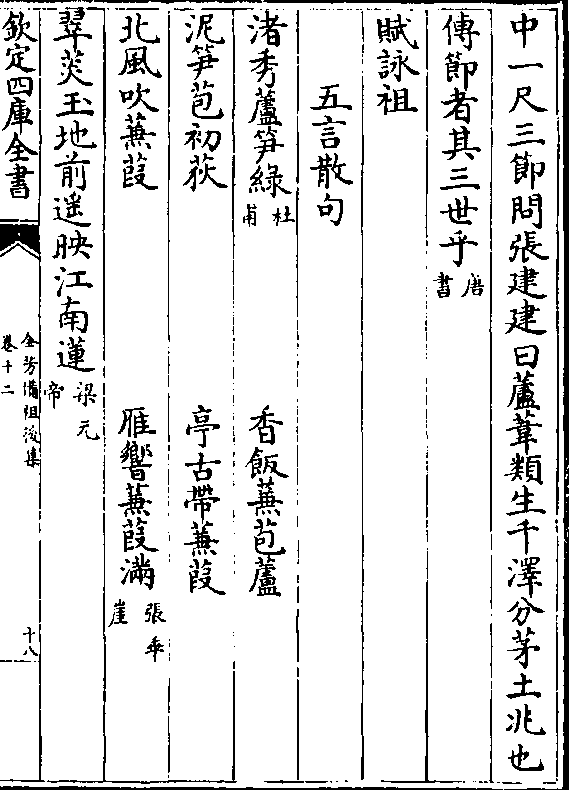 中一尺三節問張建建曰蘆葦類生于澤分茅土兆也
傳節者其三世乎唐書
賦詠祖
五言散句
渚秀蘆筍綠杜甫　香飯蒹苞蘆
泥筍苞初荻　亭古帶蒹葭
北風吹蒹葭　雁響蒹葭滿張乖崖
翠荧玉地前遥映江南蓮梁元帝
欽定四庫全書
全芳備祖後集
卷十二
十八